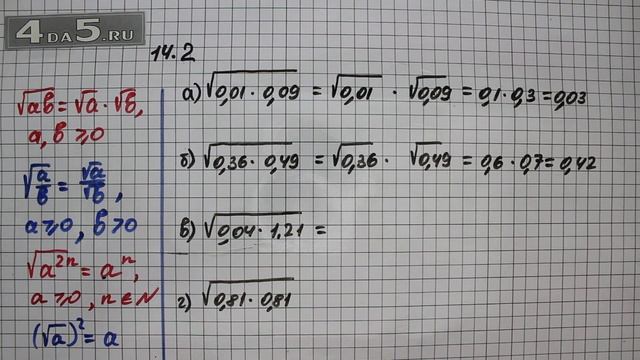 4DA5.RU
14.2
√ab = √a · √b,
a, b ⩾ 0
√(a/b) = √a/√b,
a ⩾ 0, b > 0
√a²ⁿ = aⁿ,
a ⩾ 0, n ∈ N
(√a)² = a
а) √(0,01 · 0,09) = √0,01 · √0,09 = 0,1 · 0,3 = 0,03
б) √(0,36 · 0,49) = √0,36 · √0,49 = 0,6 · 0,7 = 0,42
в) √(0,04 · 1,21) =
г) √(0,81 · 0,81)